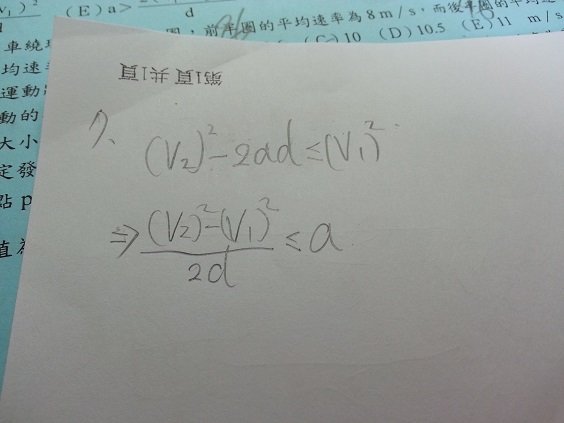 (E) a>
d
圈，前半圈的平均速率為8m/s，而後半圈的平均速
(C)10 (D)10.5 (E)11 m/s
車繞
均速
運動
動的
大小
定發
點 p
值為
第1頁共1頁
7、
(V₂)²-2ad≤(V₁)²
⇒ (V₂)²-(V₁)² / 2d ≤ a